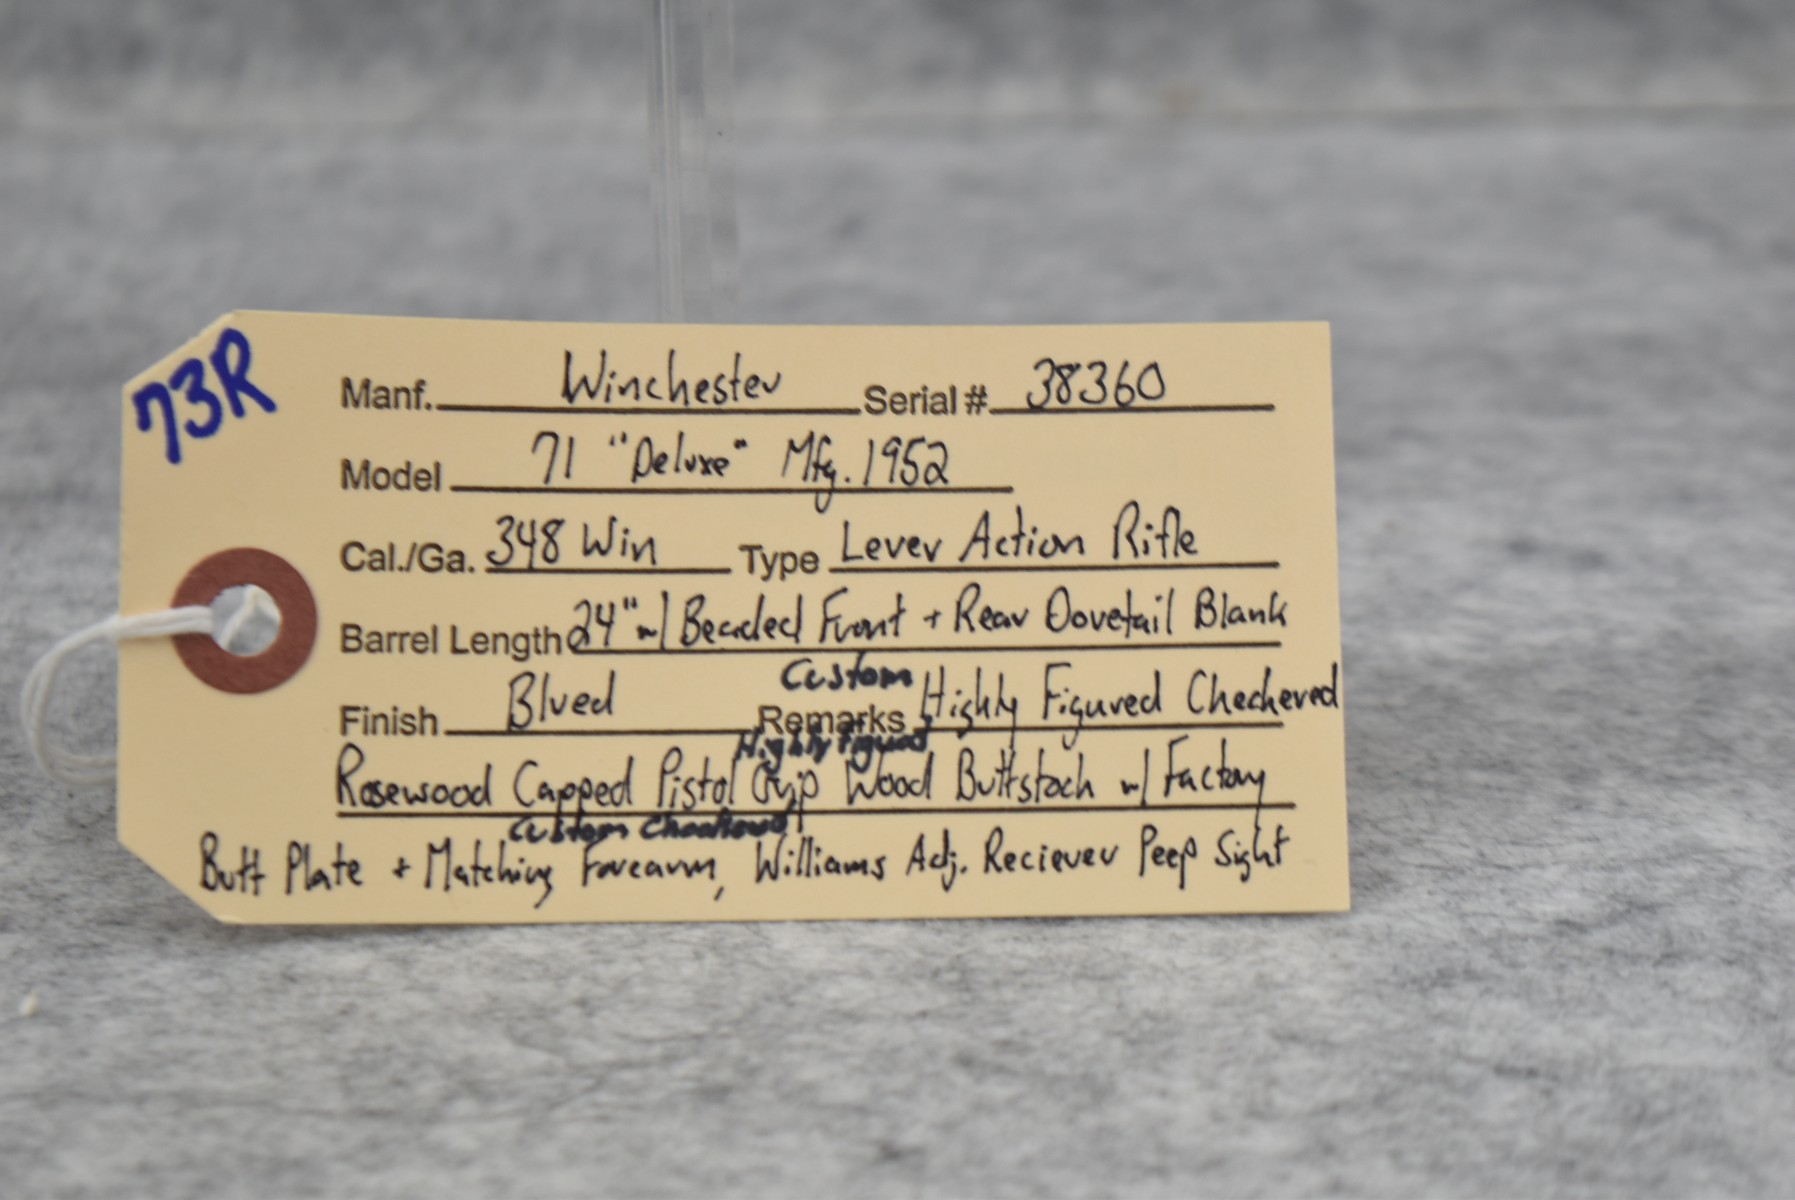 73R
Manf. Winchester Serial # 38360
Model 71 "Deluxe" Mfg. 1952
Cal./Ga. 348 Win Type Lever Action Rifle
Barrel Length 24" w/ Beaded Front + Rear Dovetail Blank
Custom
Finish Blued Remarks Highly Figured Checkered
Highly Figured
Rosewood Capped Pistol Grip Wood Buttstock w/ Factory
Custom Checkered
Butt Plate + Matching Forearm, Williams Adj. Reciever Peep Sight